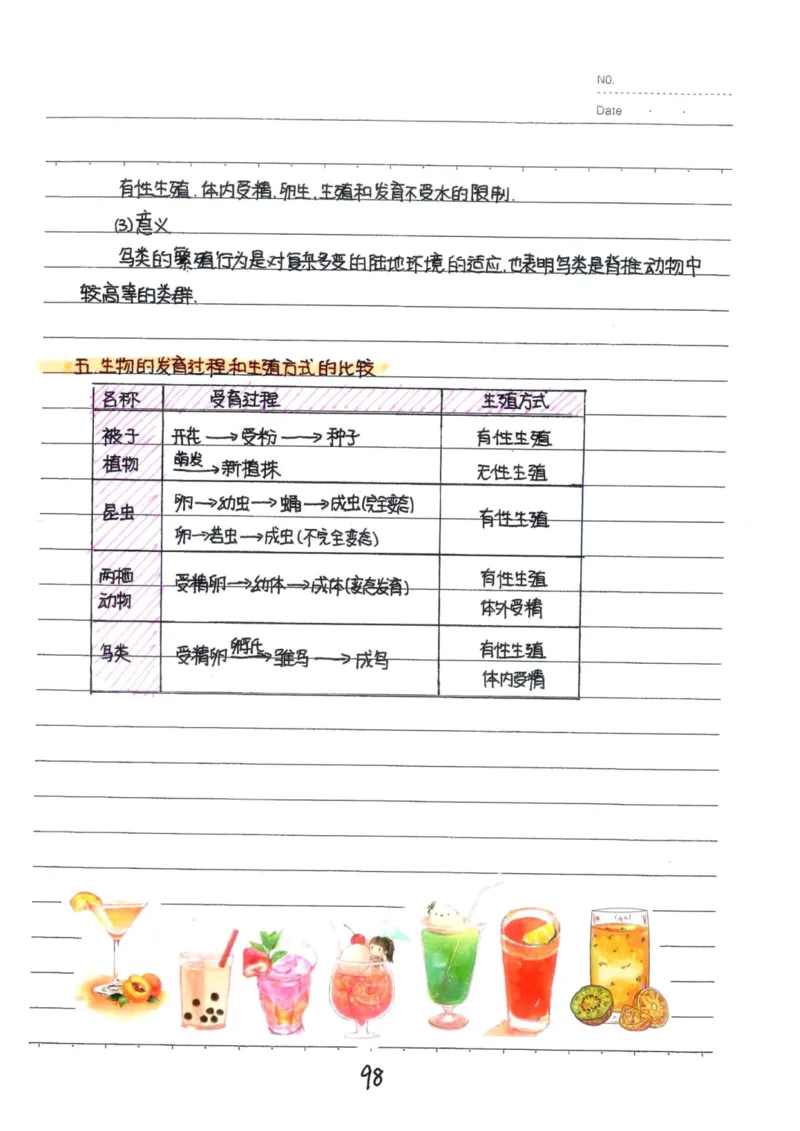 NO.
Date
有性生殖.体内受精.卵生.生殖和发育不受水的限制.
(3)意义
鸟类的繁殖行为是对复杂多变的陆地环境的适应,也表明鸟类是脊椎动物中
较高等的类群.
五.生物的发育过程和生殖方式的比较
名称 受育过程 生殖方式
被子植物 开花→受粉→种子 有性生殖
萌发→新植株 无性生殖
昆虫 卵→幼虫→蛹→成虫(完全变态) 有性生殖
卵→若虫→成虫(不完全变态)
两栖动物 受精卵→幼体→成体(变态发育) 有性生殖
体外受精
鸟类 受精卵 孵化→雏鸟→成鸟 有性生殖
体内受精
98